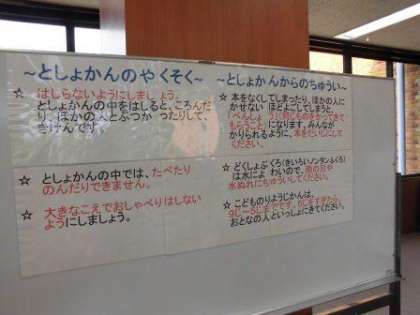 ～としょかんのやくそく～
☆ はしらないようにしましょう。
としょかんの中をはしると、ころんだ
り、ほかの人とぶつかったりして、
きけんです。
☆ としょかんの中では、たべたり
のんだりできません。
☆ 大きなこえでおしゃべりはしない
ようにしましょう。
～としょかんからのちゅうい～
☆ 本をなくしてしまったり、ほかの人に
かせない ほどよごしてしまうと、
「べんしょう」に同じものをかってきて
もらうこと」になります。みんなが
かりられるように、本をだいじにして
ください。
☆ どくしょぶくろ(きいろいノンタンふくろ)
は水によわいので、雨の日や
水ぬれにちゅういしてください。
☆ こどものりようじかんは、
おとなの人といっしょにきてください。